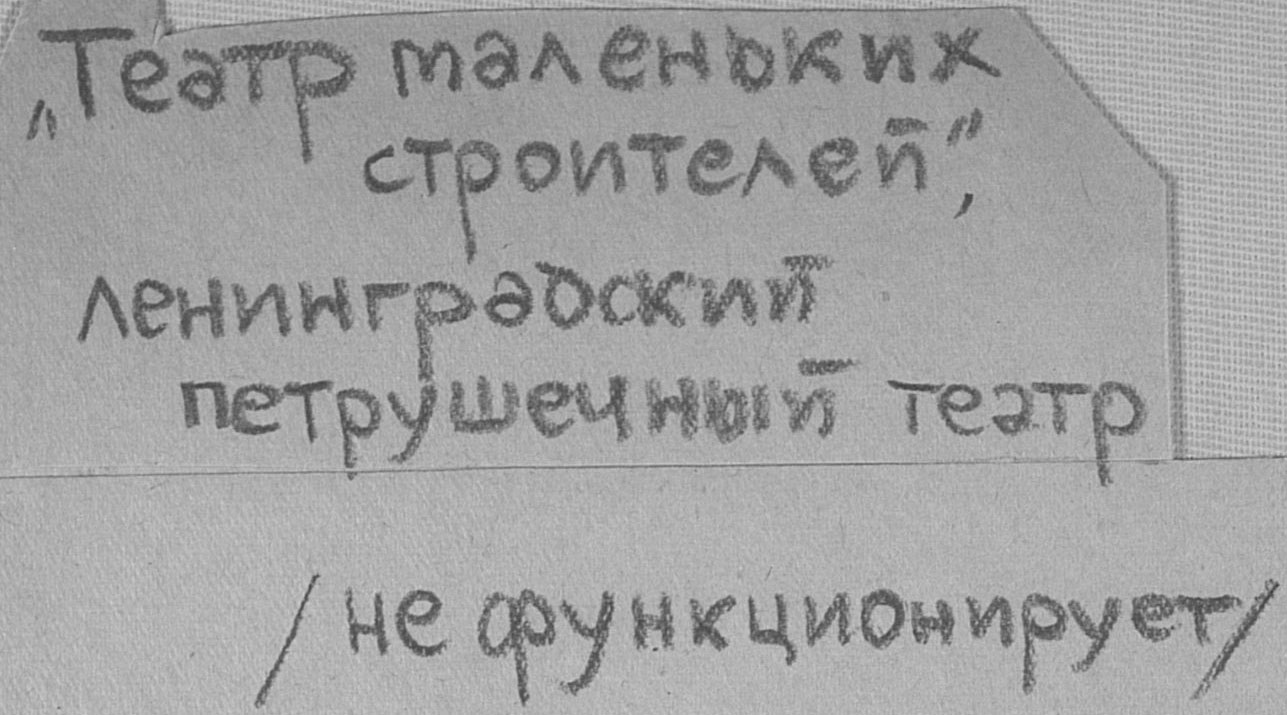 „Театр маленьких
строителей",
ленинградский
петрушечный театр
/не функционирует/